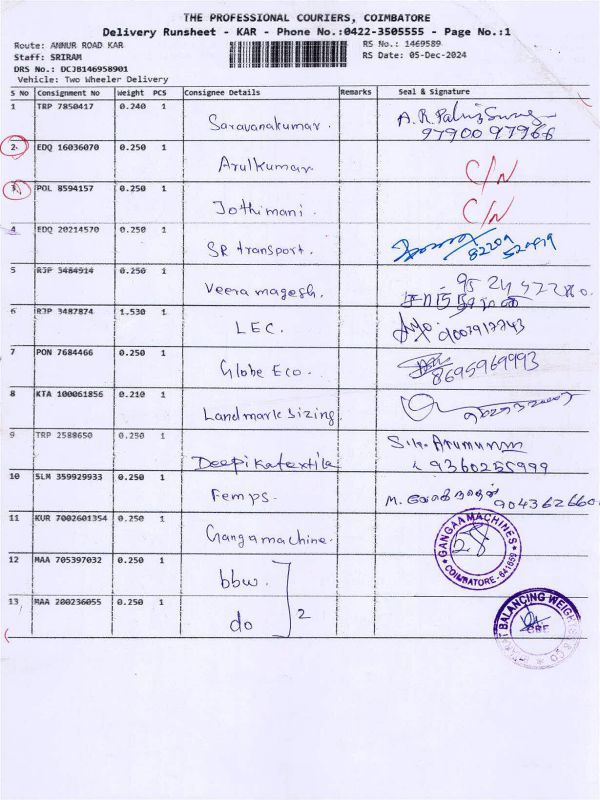 THE PROFESSIONAL COURIERS, COIMBATORE
Delivery Runsheet - KAR - Phone No.:0422-3505555 - Page No.:1
Route: ANNUR ROAD KAR
RS No.: 1469589
Staff: SRIRAM
RS Date: 05-Dec-2024
DRS No.: DCJB146958901
Vehicle: Two Wheeler Delivery
S No Consignment No Weight PCS Consignee Details Remarks Seal & Signature
1 TRP 7850417 0.240 1 Saravanakumar.
97900 97966
2 EDQ 16036070 0.250 1 Arulkumar C/N
3 POL 8594157 0.250 1 Jothimani. C/N
4 EDQ 20214570 0.250 1 SR transport.
5 RJP 3484914 0.250 1 Veera magesh.
6 RJP 3487874 1.530 1 LEC.
7 PON 7684466 0.250 1 Globe Eco. 8695969993
8 KTA 100061856 0.210 1 Landmark Sizing
9 TRP 2588650 0.250 1 Deepika textile
9360255999
10 SLM 359929933 0.250 1 Femps. M.
11 KUR 7002601354 0.250 1 Ganga machine.
GANGAA MACHINES
28
COIMBATORE - 641659
12 MAA 705397032 0.250 1 bbw.
13 MAA 200236055 0.250 1 do 2
BALANCING WEIGHTS
CBE